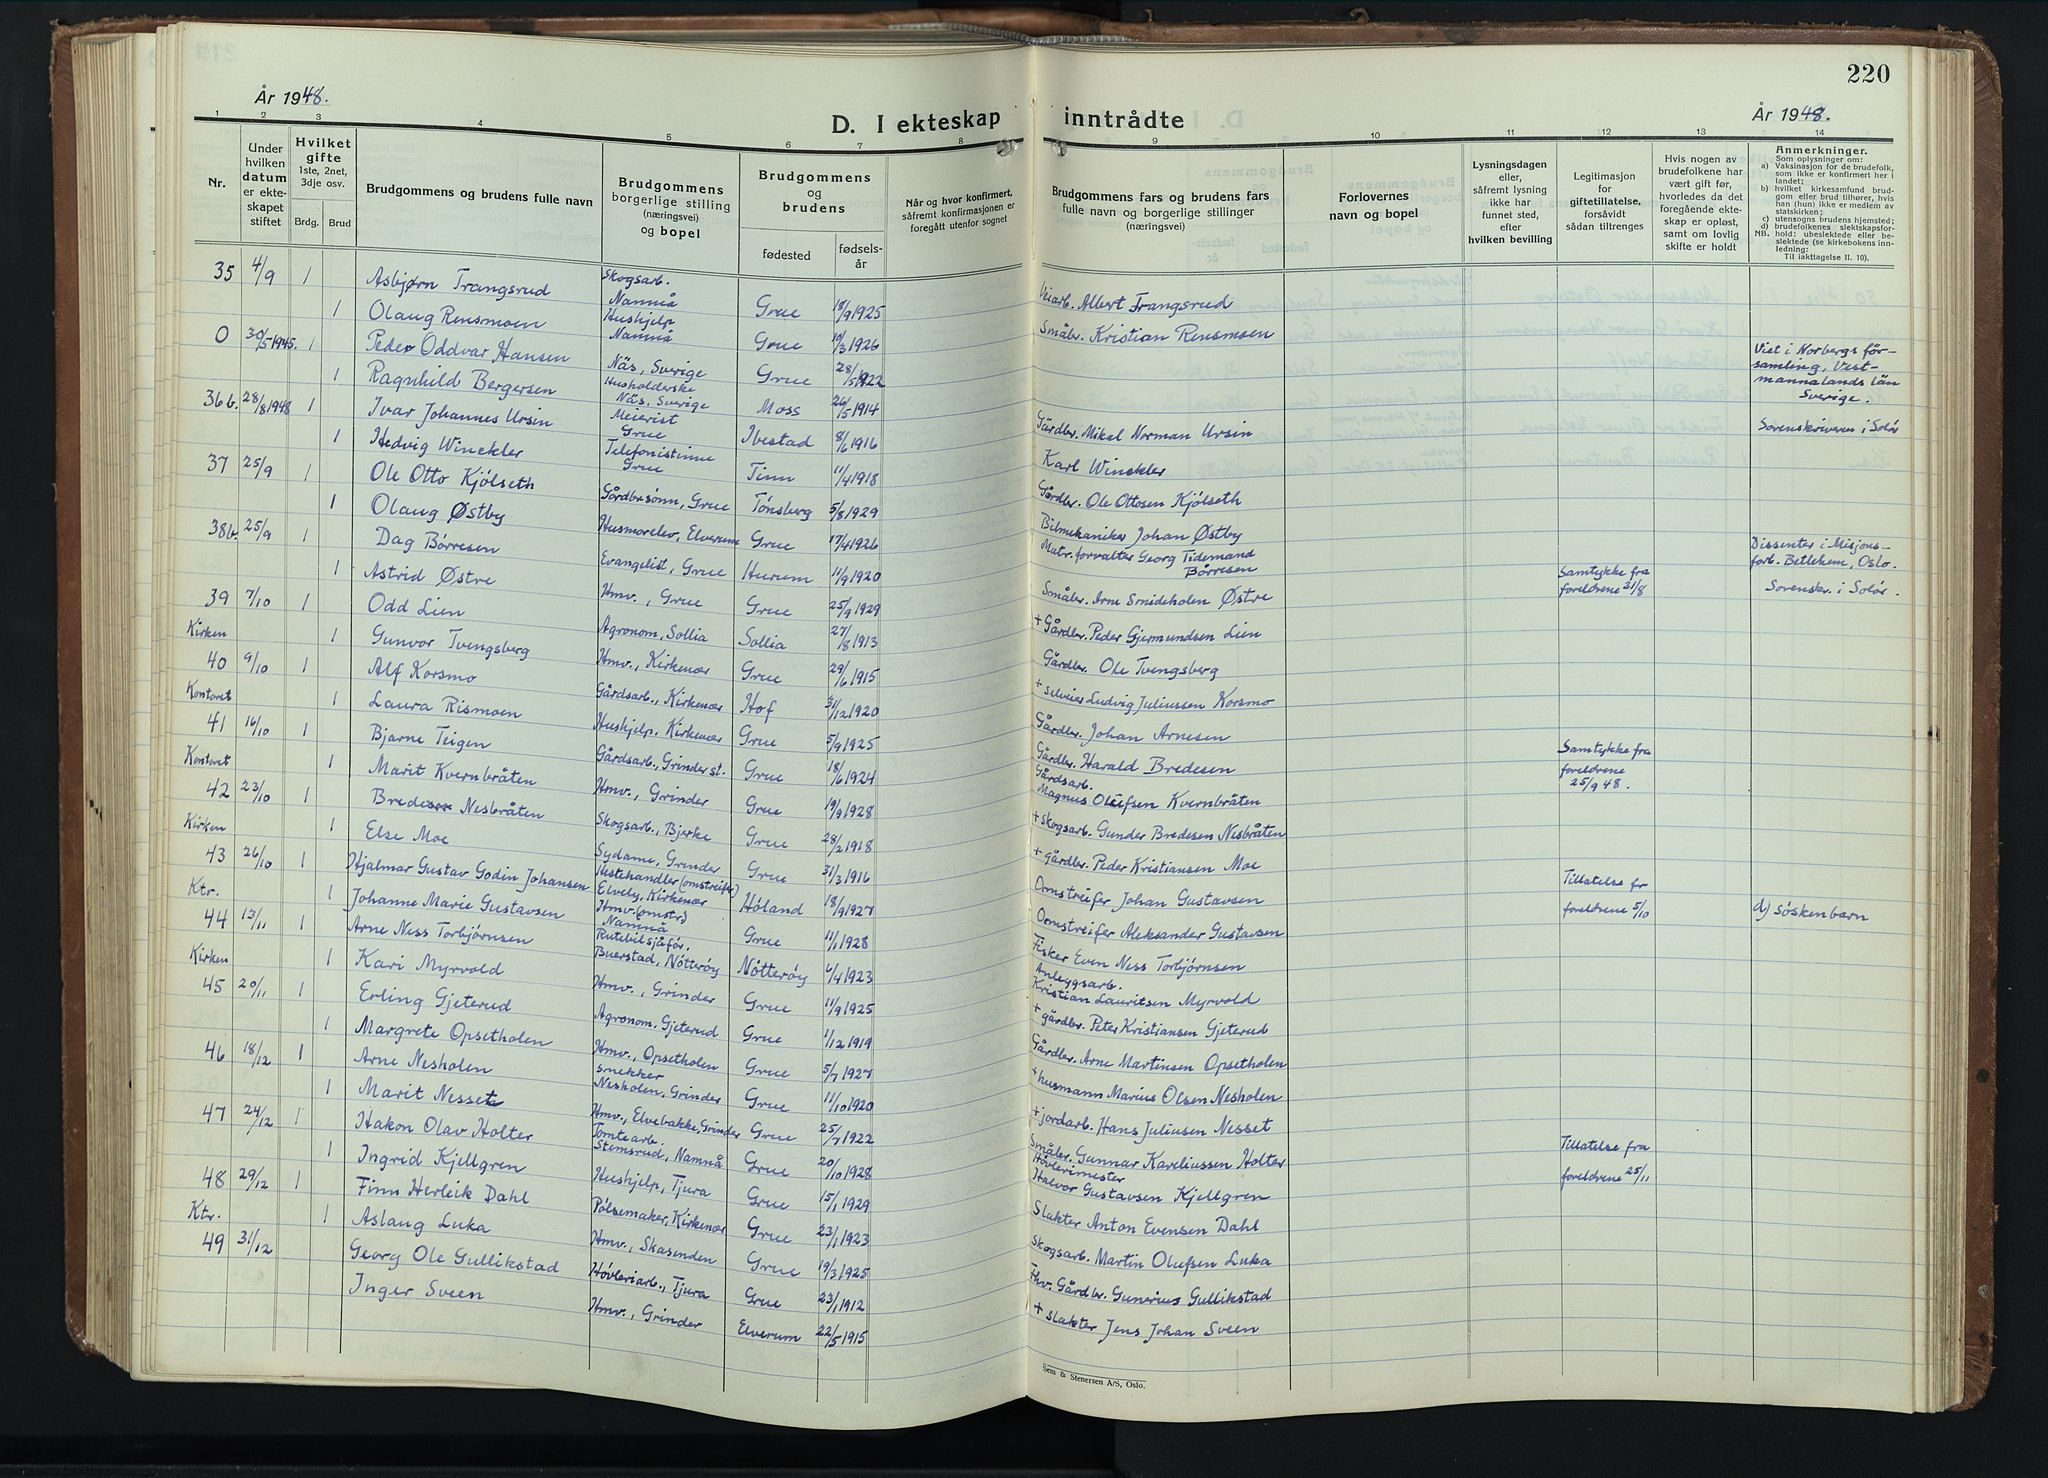 220
År 1948.
D. I ekteskap inntrådte
År 1948.
1 2 3 4 5 6 7 8 9 10 11 12 13 14
Nr.
Under hvilken datum er ekteskapet stiftet
Hvilket gifte 1ste, 2net, 3dje osv.
Brdg. Brud
Brudgommens og brudens fulle navn
Brudgommens borgerlige stilling (næringsvei) og bopel
Brudgommens og brudens
fødested fødselsår
Når og hvor konfirmert, såfremt konfirmasjonen er foregått utenfor sognet
Brudgommens fars og brudens fars fulle navn og borgerlige stillinger (næringsvei)
Forlovernes navn og bopel
Lysningsdagen eller, såfremt lysning ikke har funnet sted, efter hvilken bevilling
Legitimasjon for giftetillatelse, forsåvidt sådan tiltrenges
Hvis nogen av brudefolkene har vært gift før, hvorledes da det foregående ekteskap er opløst, samt om lovlig skifte er holdt
Anmerkninger.
Som oplysninger om:
a) Vaksinasjon for de brudefolk, som ikke er konfirmert her i landet;
b) hvilket kirkesamfund brudgom eller brud tilhører, hvis han (hun) ikke er medlem av statskirken;
c) utensogns brudens hjemsted;
d) brudefolkenes slektskapsforhold: ubeslektede eller beslektede (se kirkebokens innledning:
NB. Til iakttagelse II. 10).
35 4/9 1 Asbjørn Trangsrud Skogsarb. Namnå Grue 18/9 1925 Veiarb. Albert Trangsrud
1 Olaug Rensmoen Hushjelp Namnå Grue 10/3 1926 Småbr. Kristian Rensmoen
0 30/5 1945. 1 Peder Oddvar Hansen Näs, Sverige Grue 28/5 1922 Viet i Norbergs församling, Vestmannalands län Sverige.
1 Ragnhild Bergersen Husholderske Näs, Sverige Moss 26/5 1914
36 b. 28/8 1948 1 Ivar Johannes Ursin Meierist Grue Ibestad 8/6 1916 Gårdbr. Mikal Norman Ursin Sorenskriveren i Solør
1 Hedvig Winckler Telefonistinne Grue Tinn 11/4 1918 Karl Winckler
37 25/9 1 Ole Otto Kjölseth Gårdbrsönn, Grue Tönsberg 5/8 1929 Gårdbr. Ole Ottosen Kjölseth
1 Olaug Østby Husmorelev, Elverum Grue 17/4 1926 Bilmekaniker Johan Østby
38b. 25/9 1 Dag Börresen Evangelist, Grue Hurum 11/9 1920 Matr. forvalter Georg Tidemand Börresen Dissenter i Misjonsforb. Betlehem, Oslo.
1 Astrid Østre Hmv., Grue Grue 25/9 1929 Småbr. Arne Smideholen Østre Samtykke fra foreldrene 31/8 Sorenskr. i Solör.
39 7/10 1 Odd Lien Agronom, Sollia Sollia 27/8 1913 + Gårdbr. Peder Gjermundsen Lien
Kirken 1 Gunvor Tvengsberg Hmv., Kirkenær Grue 29/6 1915 Gårdbr. Ole Tvengsberg
40 9/10 1 Alf Korsmo Gårdsarb., Kirkenær Hof 31/12 1920 + selveier Ludvig Juliussen Korsmo
Kontoret 1 Laura Rismoen Hushjelp, Kirkenær Grue 5/9 1925 Gårdbr. Johan Arnesen
41 16/10 1 Bjarne Teigen Gårdsarb., Grinder st. Grue 18/6 1924 Gårdbr. Harald Bredesen
Kontoret 1 Marit Kvernbråten Hmv., Grinder Grue 19/9 1928 Gårdsarb. Magnus Olufsen Kvernbråten Samtykke fra foreldrene 25/9 48.
42 23/10 1 Brede Nesbråten Skogsarb., Bjerke Grue 28/2 1918 + Skogsarb. Gunder Bredesen Nesbråten
Kirken 1 Else Moe Sydame, Grinder Grue 31/3 1916 + gårdbr. Peder Kristiansen Moe
43 26/10 1 Hjalmar Gustav Godin Johansen Hestehandler (omstreifer) Elvely, Kirkenær Höland 18/9 1927 Omstreifer Johan Gustavsen
Ktr. 1 Johanne Marie Gustavsen Hmv. (omstr.) Namnå Grue 11/1 1928 Omstreifer Aleksander Gustavsen Tillatelse fr foreldrene 5/10 d) Söskenbarn
44 13/11 1 Arne Ness Torbjörnsen Rutebilsjåför. Buerstad, Nötteröy Nötteröy 6/4 1923 Fisker Even Ness Torbjörnsen
Kirken 1 Kari Myrvold Hmv., Grinder Grue 11/9 1925 Anleggsarb. Kristian Lauritsen Myrvold
45 20/11 1 Erling Gjeterud Agronom, Gjeterud Grue 11/12 1919 + gårdbr. Peter Kristiansen Gjeterud
1 Margrete Opsetholen Hmv., Opsetholen Grue 5/7 1927 Gårdbr. Arne Martinsen Opsetholen
46 18/12 1 Arne Nesholen Snekker Nesholen, Grinder Grue 11/10 1920 + husmann Marius Olsen Nesholen
1 Marit Nesset Hmv., Elvebakke, Grinder Grue 25/7 1922 + jordarb. Hans Juliusen Nesset
47 24/12 1 Hakon Olav Holter Tomtearb. Stemsrud, Namnå Grue 20/10 1928 Småbr. Gunnar Kareliussen Holter
1 Ingrid Kjellgren Hushjelp, Tjura Grue 15/1 1929 Hövlerimester Halvor Gustavsen Kjellgren Tillatelse fra foreldrene 25/11
48 29/12 1 Finn Herleik Dahl Pölsemaker, Kirkenær Grue 23/1 1923 Slakter Anton Evensen Dahl
Ktr. 1 Aslaug Luka Hmv., Skasenden Grue 19/3 1925 Skogsarb. Martin Olufsen Luka
49 31/12 Georg Ole Gullikstad Hövleriarb., Tjura Grue 23/1 1912 Fhv. Gårdbr. Gunerius Gullikstad
Inger Sveen Hmv., Grinder Elverum 22/5 1915 + Slakter Jens Johan Sveen
Sem & Stenersen A/S, Oslo.